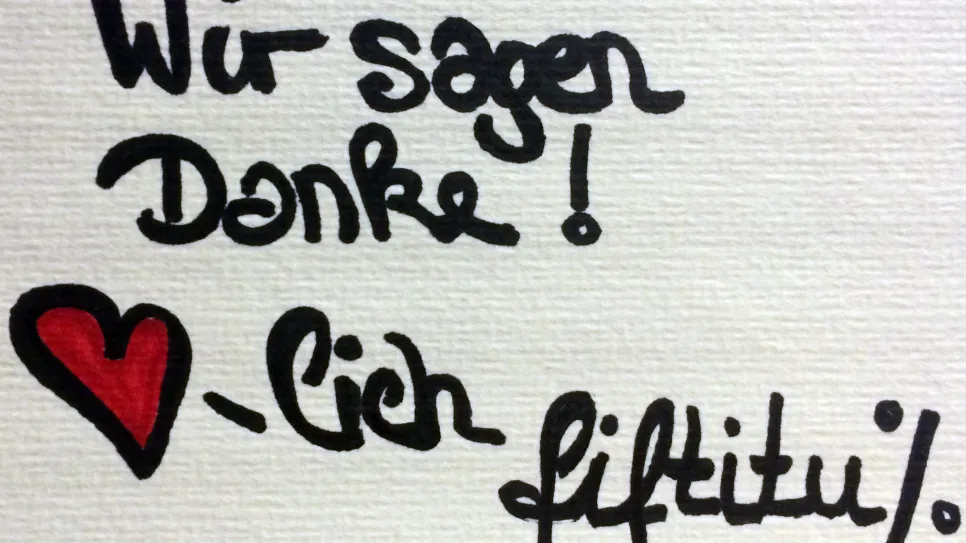 Wir sagen
Danke!
-lich
fiftitu%